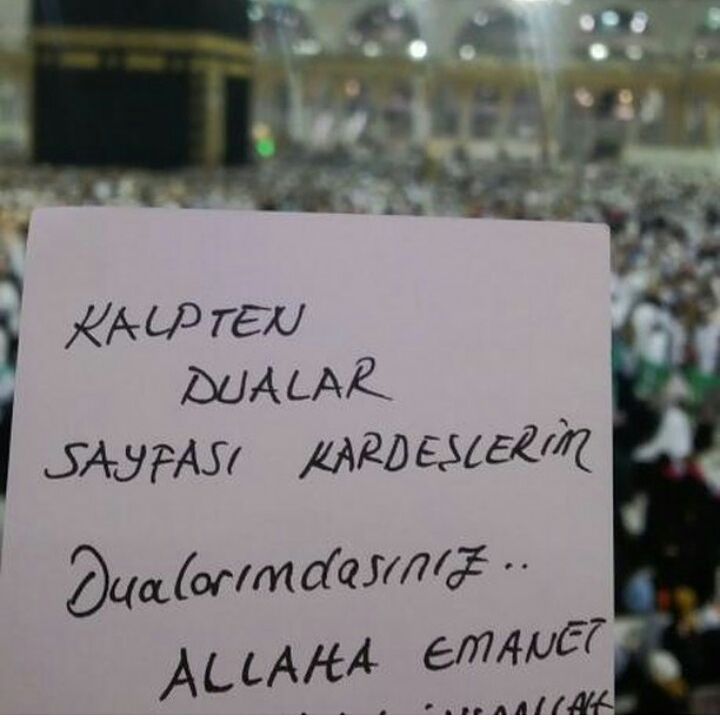 KALPTEN
DUALAR
SAYFASI KARDEŞLERİM
Dualarımdasınız..
ALLAHA EMANET